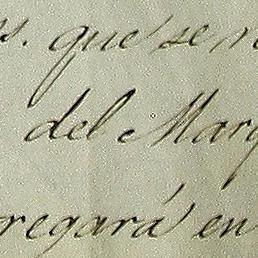 s. que se n
del Marq
regará en